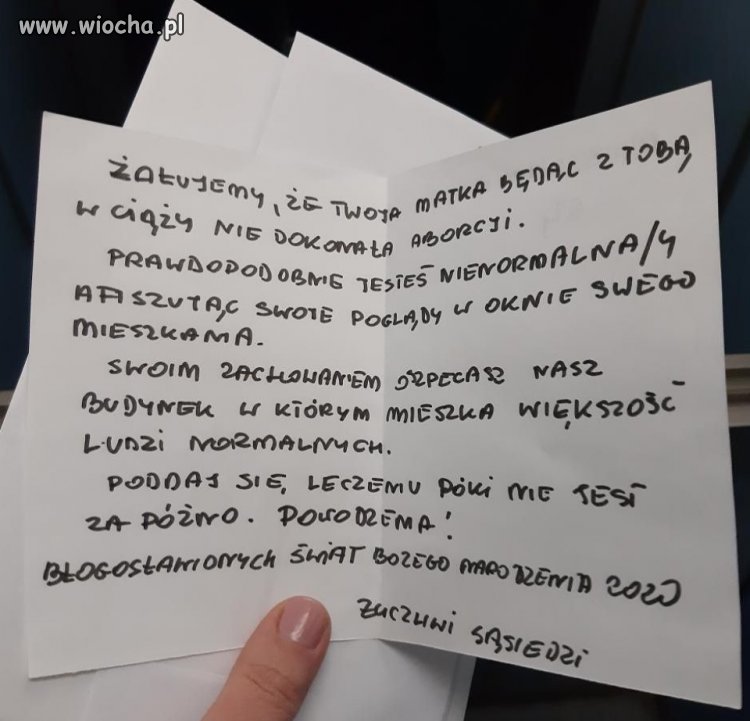 www.wiocha.pl
ŻAŁUJEMY, ŻE TWOJA MATKA BĘDĄC Z TOBĄ
W CIĄŻY NIE DOKONAŁA ABORCJI.
PRAWDOPODOBNIE JESTEŚ NIENORMALNA/Y
AFISZUJĄC SWOJE POGLĄDY W OKNIE SWEGO
MIESZKANIA.
SWOIM ZACHOWANIEM OSZPECASZ NASZ
BUDYNEK W KTÓRYM MIESZKA WIĘKSZOŚĆ
LUDZI NORMALNYCH.
PODDAJ SIĘ LECZENIU PÓKI NIE JEST
ZA PÓŹNO. POWODZENIA!
BŁOGOSŁAWIONYCH ŚWIĄT BOŻEGO NARODZENIA 2020
ŻYCZLIWI SĄSIEDZI